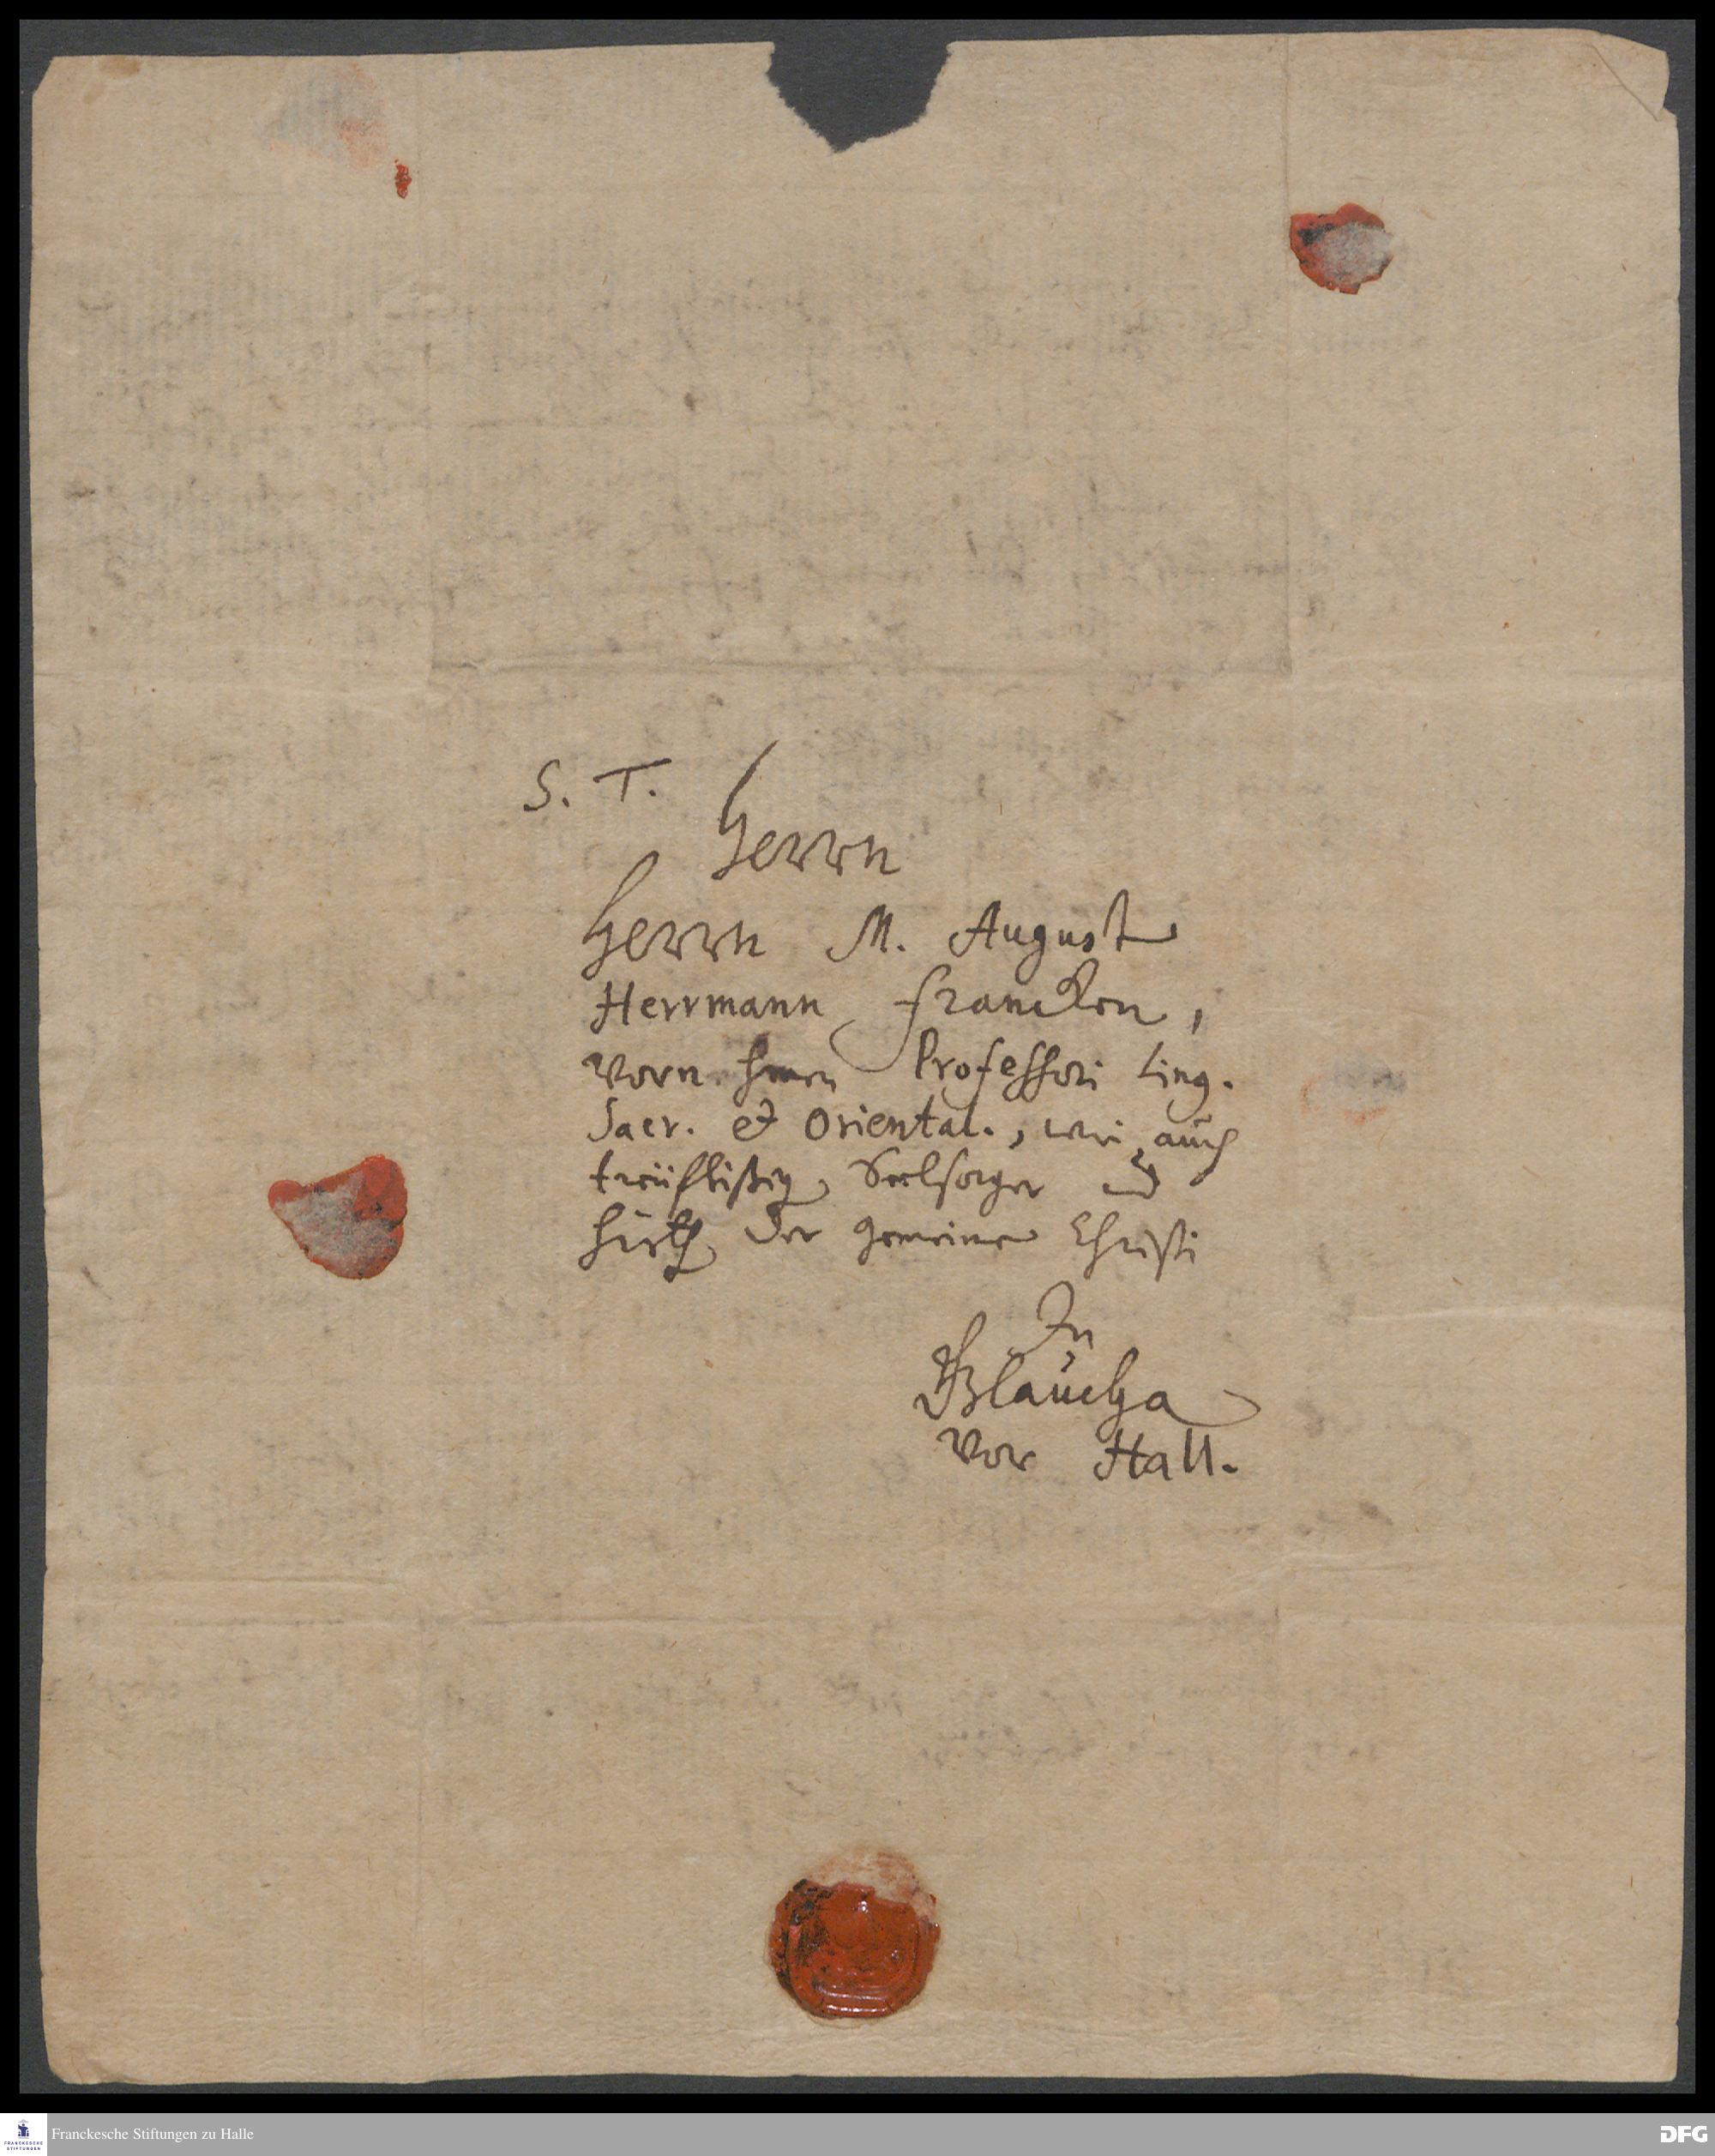 S. T.
Herrn
Herrn M. August
Herrmann Francken,
Vornehmen Professori Ling.
Sacr. et Oriental., wie auch
treüfleißig Seelsorger und
Hirth der Gemeine Christi
In
Glaücha
vor Hall.
Franckesche Stiftungen zu Halle
FRANCKESCHE
STIFTUNGEN
DFG